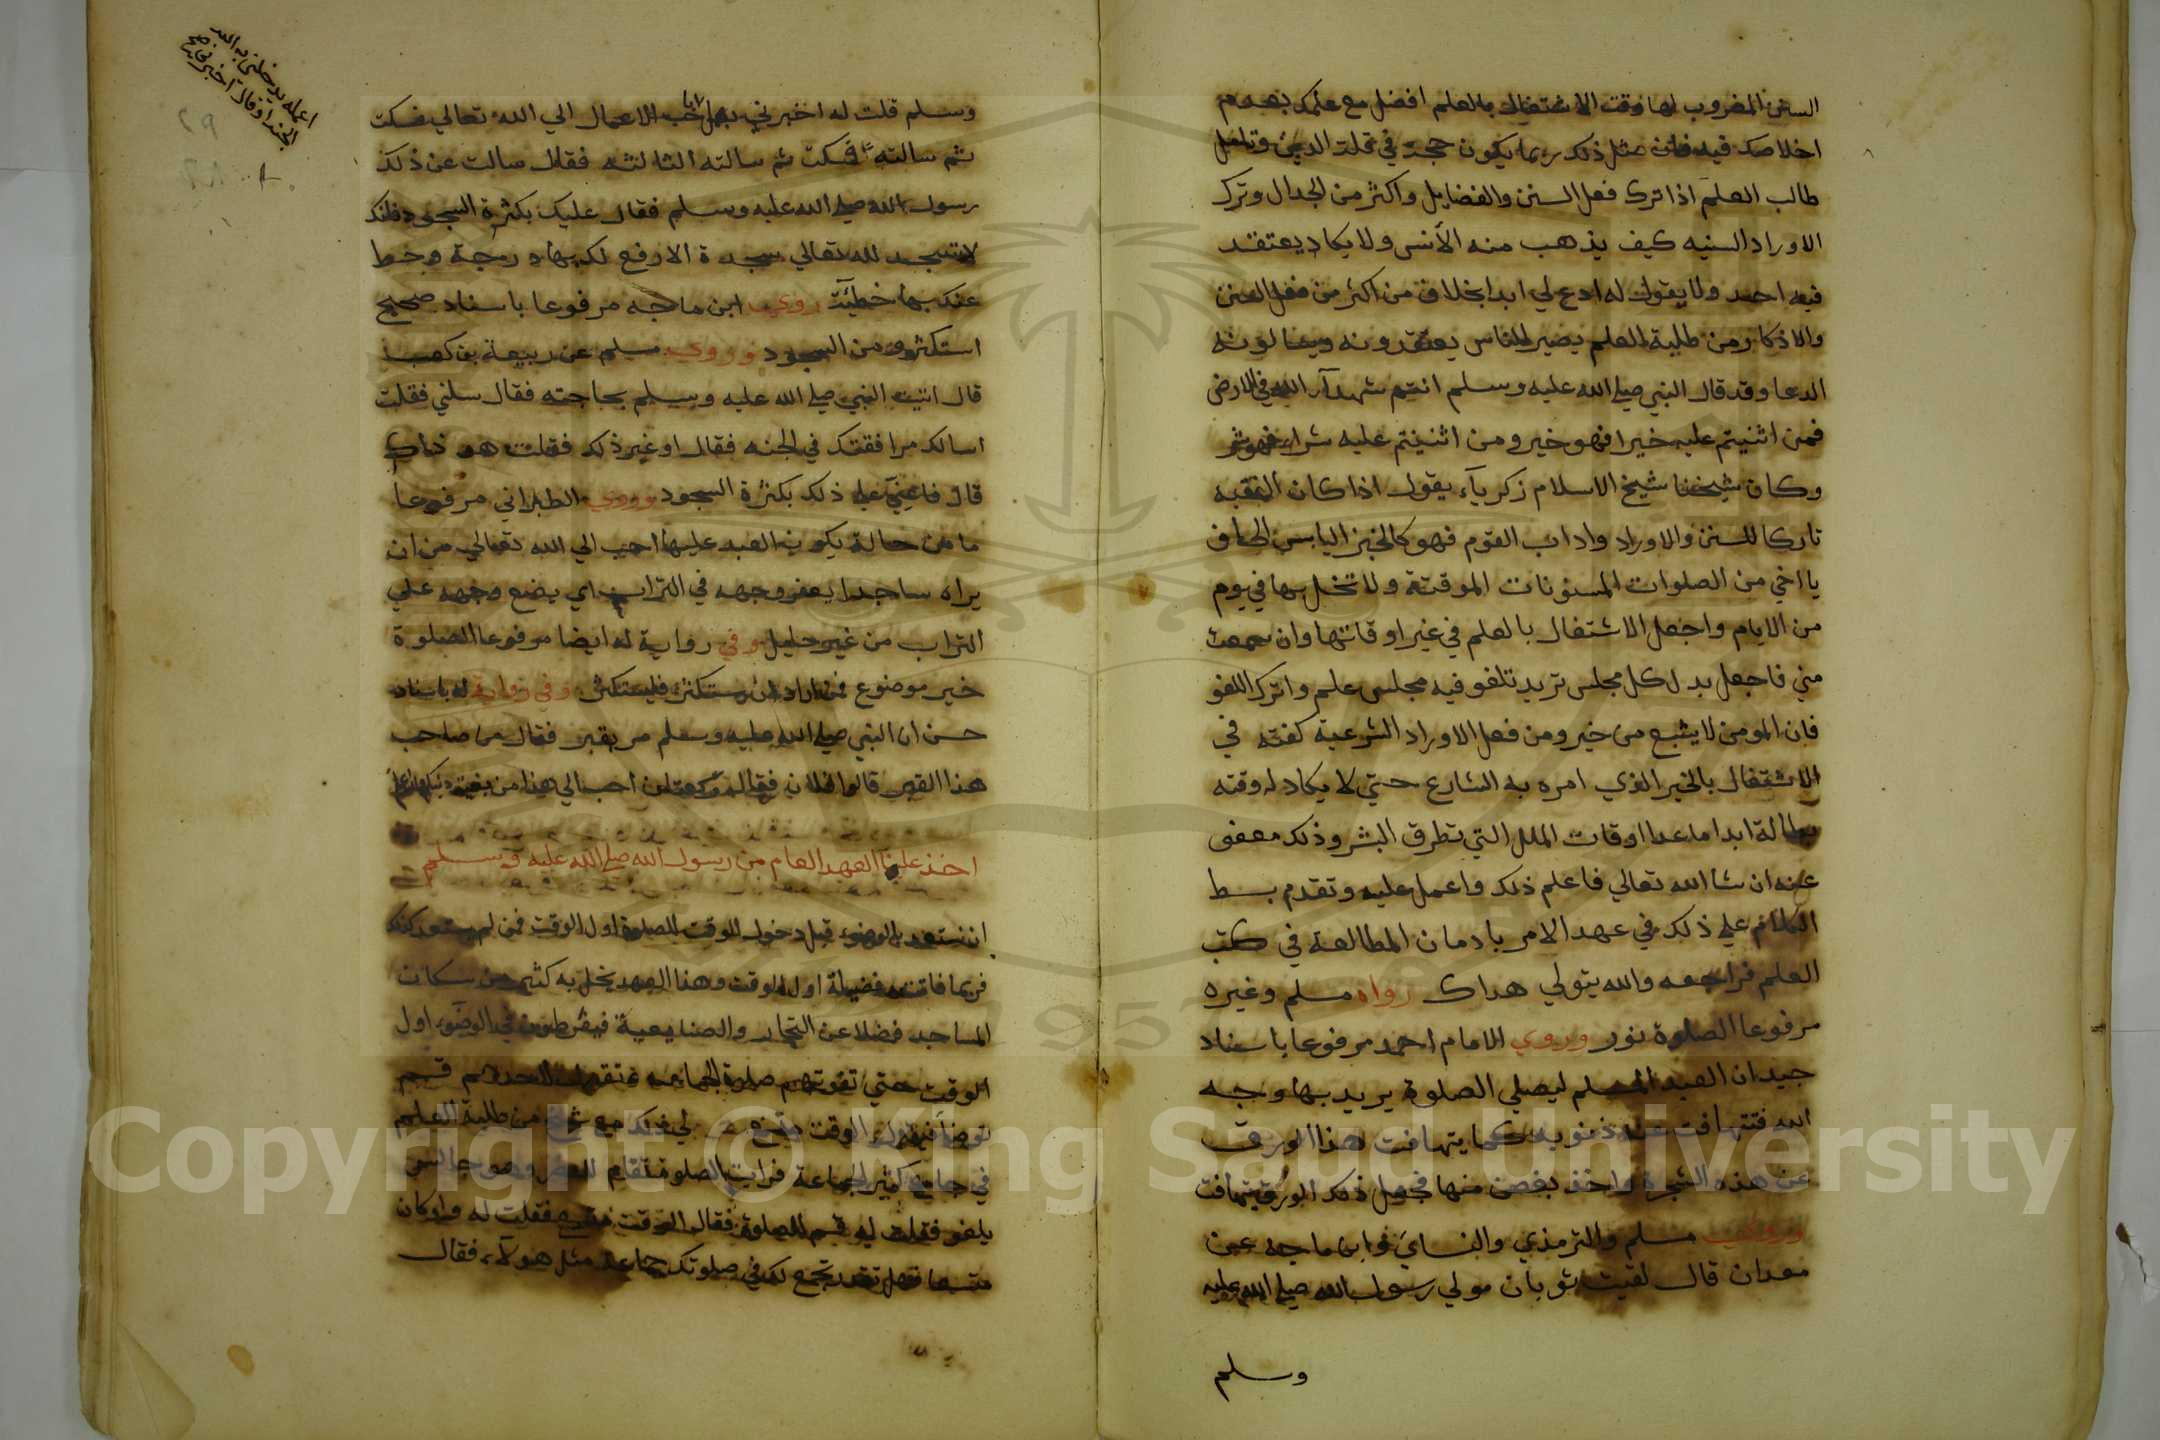 السنن المضروب لها وقت الاشتغال بالعلم افضل مع علمك بعدم
اخلاصك فيه فان مثل ذلك ربما يكون حجة في قلة الدين وتامل
طالب العلم اذا ترك فعل السنن والفضايل واكثر من الجدال وترك
الاوراد السنيه كيف يذهب منه الأنس ولا يكاد يعتقد
فيه احد ولا يقول له ادع لي ابدا بخلاف من اكثر من فعل السنن
والاذكار من طلبة العلم يصير الناس يعتقدونه ويسالونه
الدعا وقد قال النبي صلي الله عليه وسلم انتم شهدآء الله في الارض
فمن اثنيتم عليه خيرا فهو خير ومن اثنيتم عليه شرا فهو شر
وكان شيخنا شيخ الاسلام زكريآء يقول اذا كان الفقيه
تاركا للسنن والاوراد واداب القوم فهو كالخبز اليابس الحاف
يا اخي من الصلوات المسنونات الموقتة ولا تخل بها في يوم
من الايام واجعل الاشتغال بالعلم في غير اوقاتها وان سمعت
مني فاجعل بدل كل مجلس تريد تلغو فيه مجلس علم واترك اللغو
فان المومن لا يشبع من خير ومن فعل الاوراد الشرعية كفته في
الاشتغال بالخير الذي امره به الشارع حتي لا يكاد له وقته
بطالة ابدا ما عدا اوقات الملل التي تطرق البشر وذلك معفى
عنه ان شا الله تعالي فاعلم ذلك واعمل عليه وتقدم بسط
الكلام علي ذلك في عهد الامر بادمان المطالعة في كتب
العلم فراجعه والله يتولي هداك رواه مسلم وغيره
مرفوعا الصلوة نور وروي الامام احمد مرفوعا باسناد
جيد ان العبد المسلم ليصلي الصلوة يريد بها وجه
الله فتتهافت عنه ذنوبه كما يتهافت هذا الورق
عن هذه الشجرة واخذ بغصن منها فجعل ذلك الورق يتهافت
وروي مسلم والترمذي والنساي وابن ماجه عن
معدان قال لقيت ثوبان مولي رسول الله صلي الله عليه
وسلم
وسلم قلت له اخبرني باحب الاعمال الي الله تعالي فسكت
ثم سالته فسكت ثم سالته الثالثه فقال سالت عن ذلك
رسول الله صلي الله عليه وسلم فقال عليك بكثرة السجود فانك
لا تسجد لله تعالي سجدة الا رفع لك بها درجة وحط
عنك بها خطيئة روي ابن ماجه مرفوعا باسناد صحيح
استكثروا من السجود وروي مسلم عن ربيعة بن كعب
قال اتيت النبي صلي الله عليه وسلم بحاجته فقال سلني فقلت
اسالك مرافقتك في الجنه فقال او غير ذلك فقلت هو ذاك
قال فاعني علي ذلك بكثرة السجود وروي الطبراني مرفوعا
ما من حالة يكون العبد عليها احب الي الله تعالي من ان
يراه ساجدا يعفر وجهه في التراب اي يضع وجهه علي
التراب من غير حايل وفي رواية له ايضا مرفوعا الصلوة
خير موضوع فمن اراد ان يستكثر فليستكثر وفي رواية له باسناد
حسن ان النبي صلي الله عليه وسلم مر بقبر فقال من صاحب
هذا القبر قالوا فلان فقال ركعتان احب الي هذا من بقية دنياكم والله اعلم
اخذ علينا العهد العام من رسول الله صلي الله عليه وسلم
ان نستعد بالوضوء قبل دخول الوقت للصلوة اول الوقت فمن لم يستعد كذلك
فربما فاتته فضيلة اول الوقت وهذا العهد يخل به كثير من سكان
المساجد فضلا عن التجار والصنايعية فيفرطون في الوضوء اول
الوقت حتي تفوتهم صلوة الجماعة فتقول لاحدهم قم
توضأ فيقول الوقت متسع وقع لي ذلك مع شخص من طلبة العلم
في جامع كثير الجماعة فرايت الصلوة تقام للعصر وهو جالس
يلغو فقلت له قم للصلوة فقال الوقت متسع فقلت له ولو كان
متسعا فهل تقدر تجمع لك في صلوتك جماعة مثل هولآء فقال
اعمله يدخلني به الله
الجنة او قال اخبرني
1957
Copyright © King Saud University